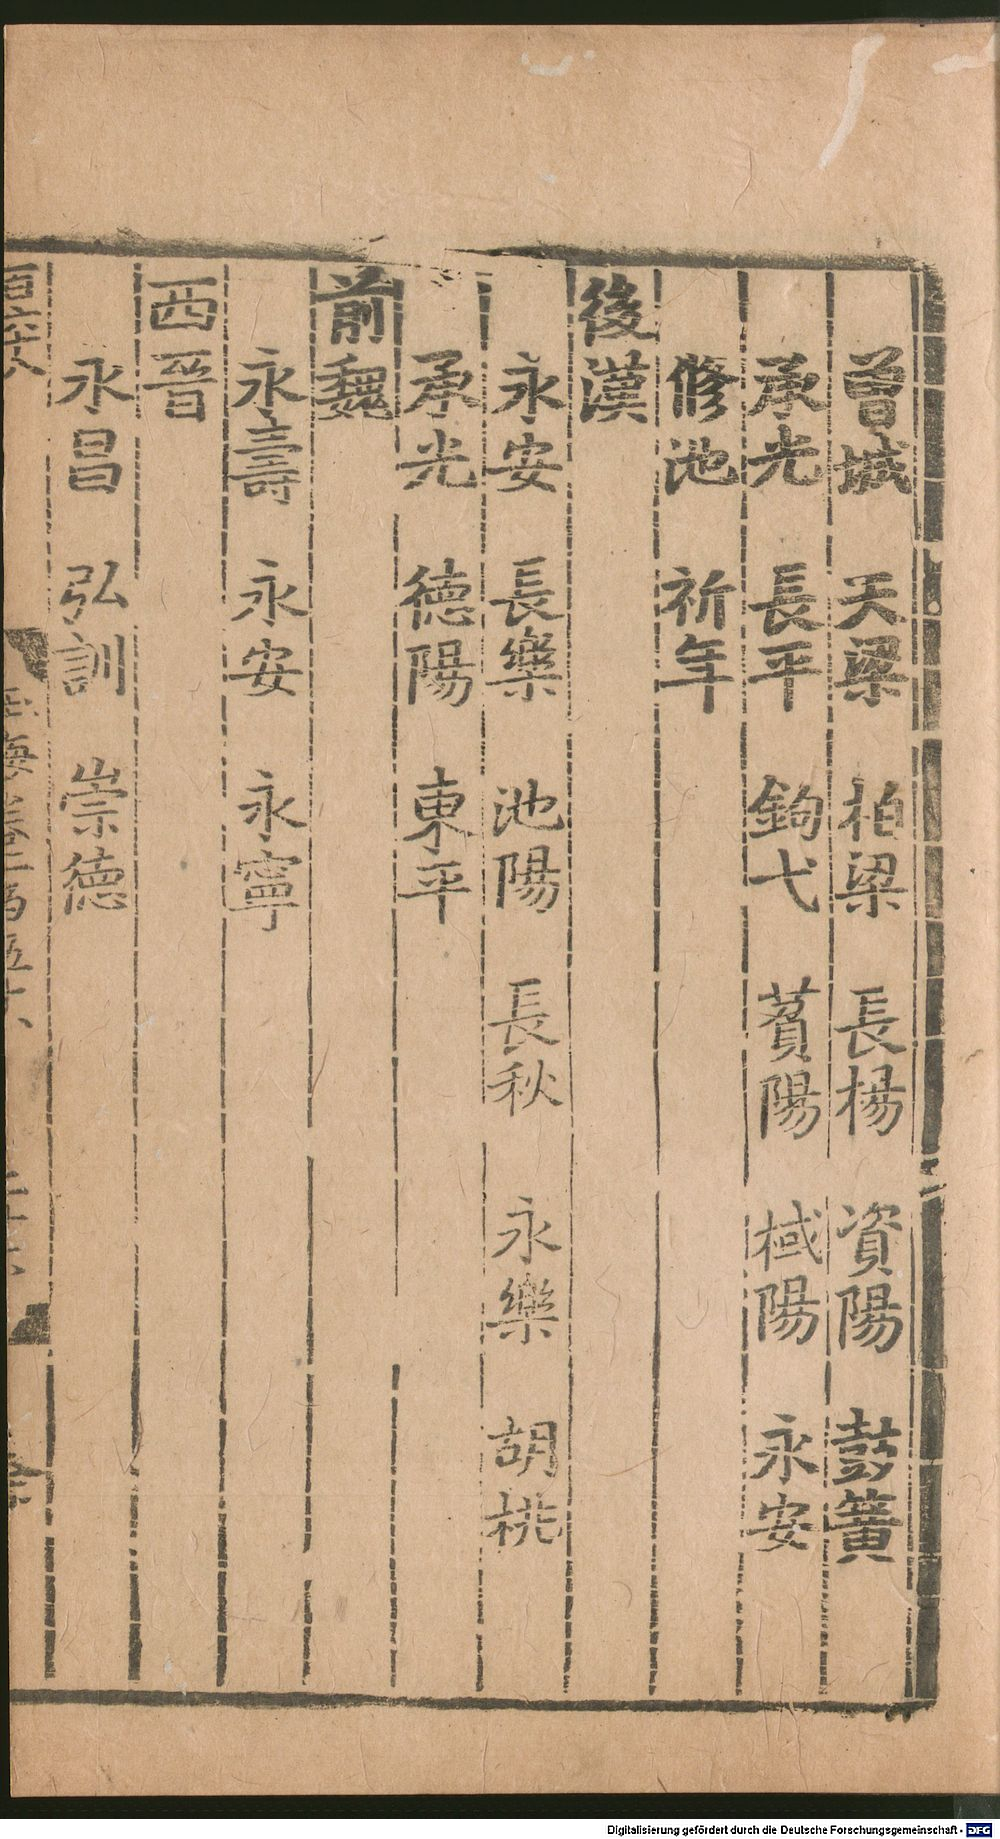 曾城　天梁　柏梁　長楊　資陽　鼓簧
承光　長平　鉤弋　萯陽　棫陽　永安
修池　祈年
後漢
永安　長樂　池陽　長秋　永樂　胡桃
承光　德陽　東平
前魏
永壽　永安　永寧
西晉
永昌　弘訓　崇德
Digitalisierung gefördert durch die Deutsche Forschungsgemeinschaft - DFG